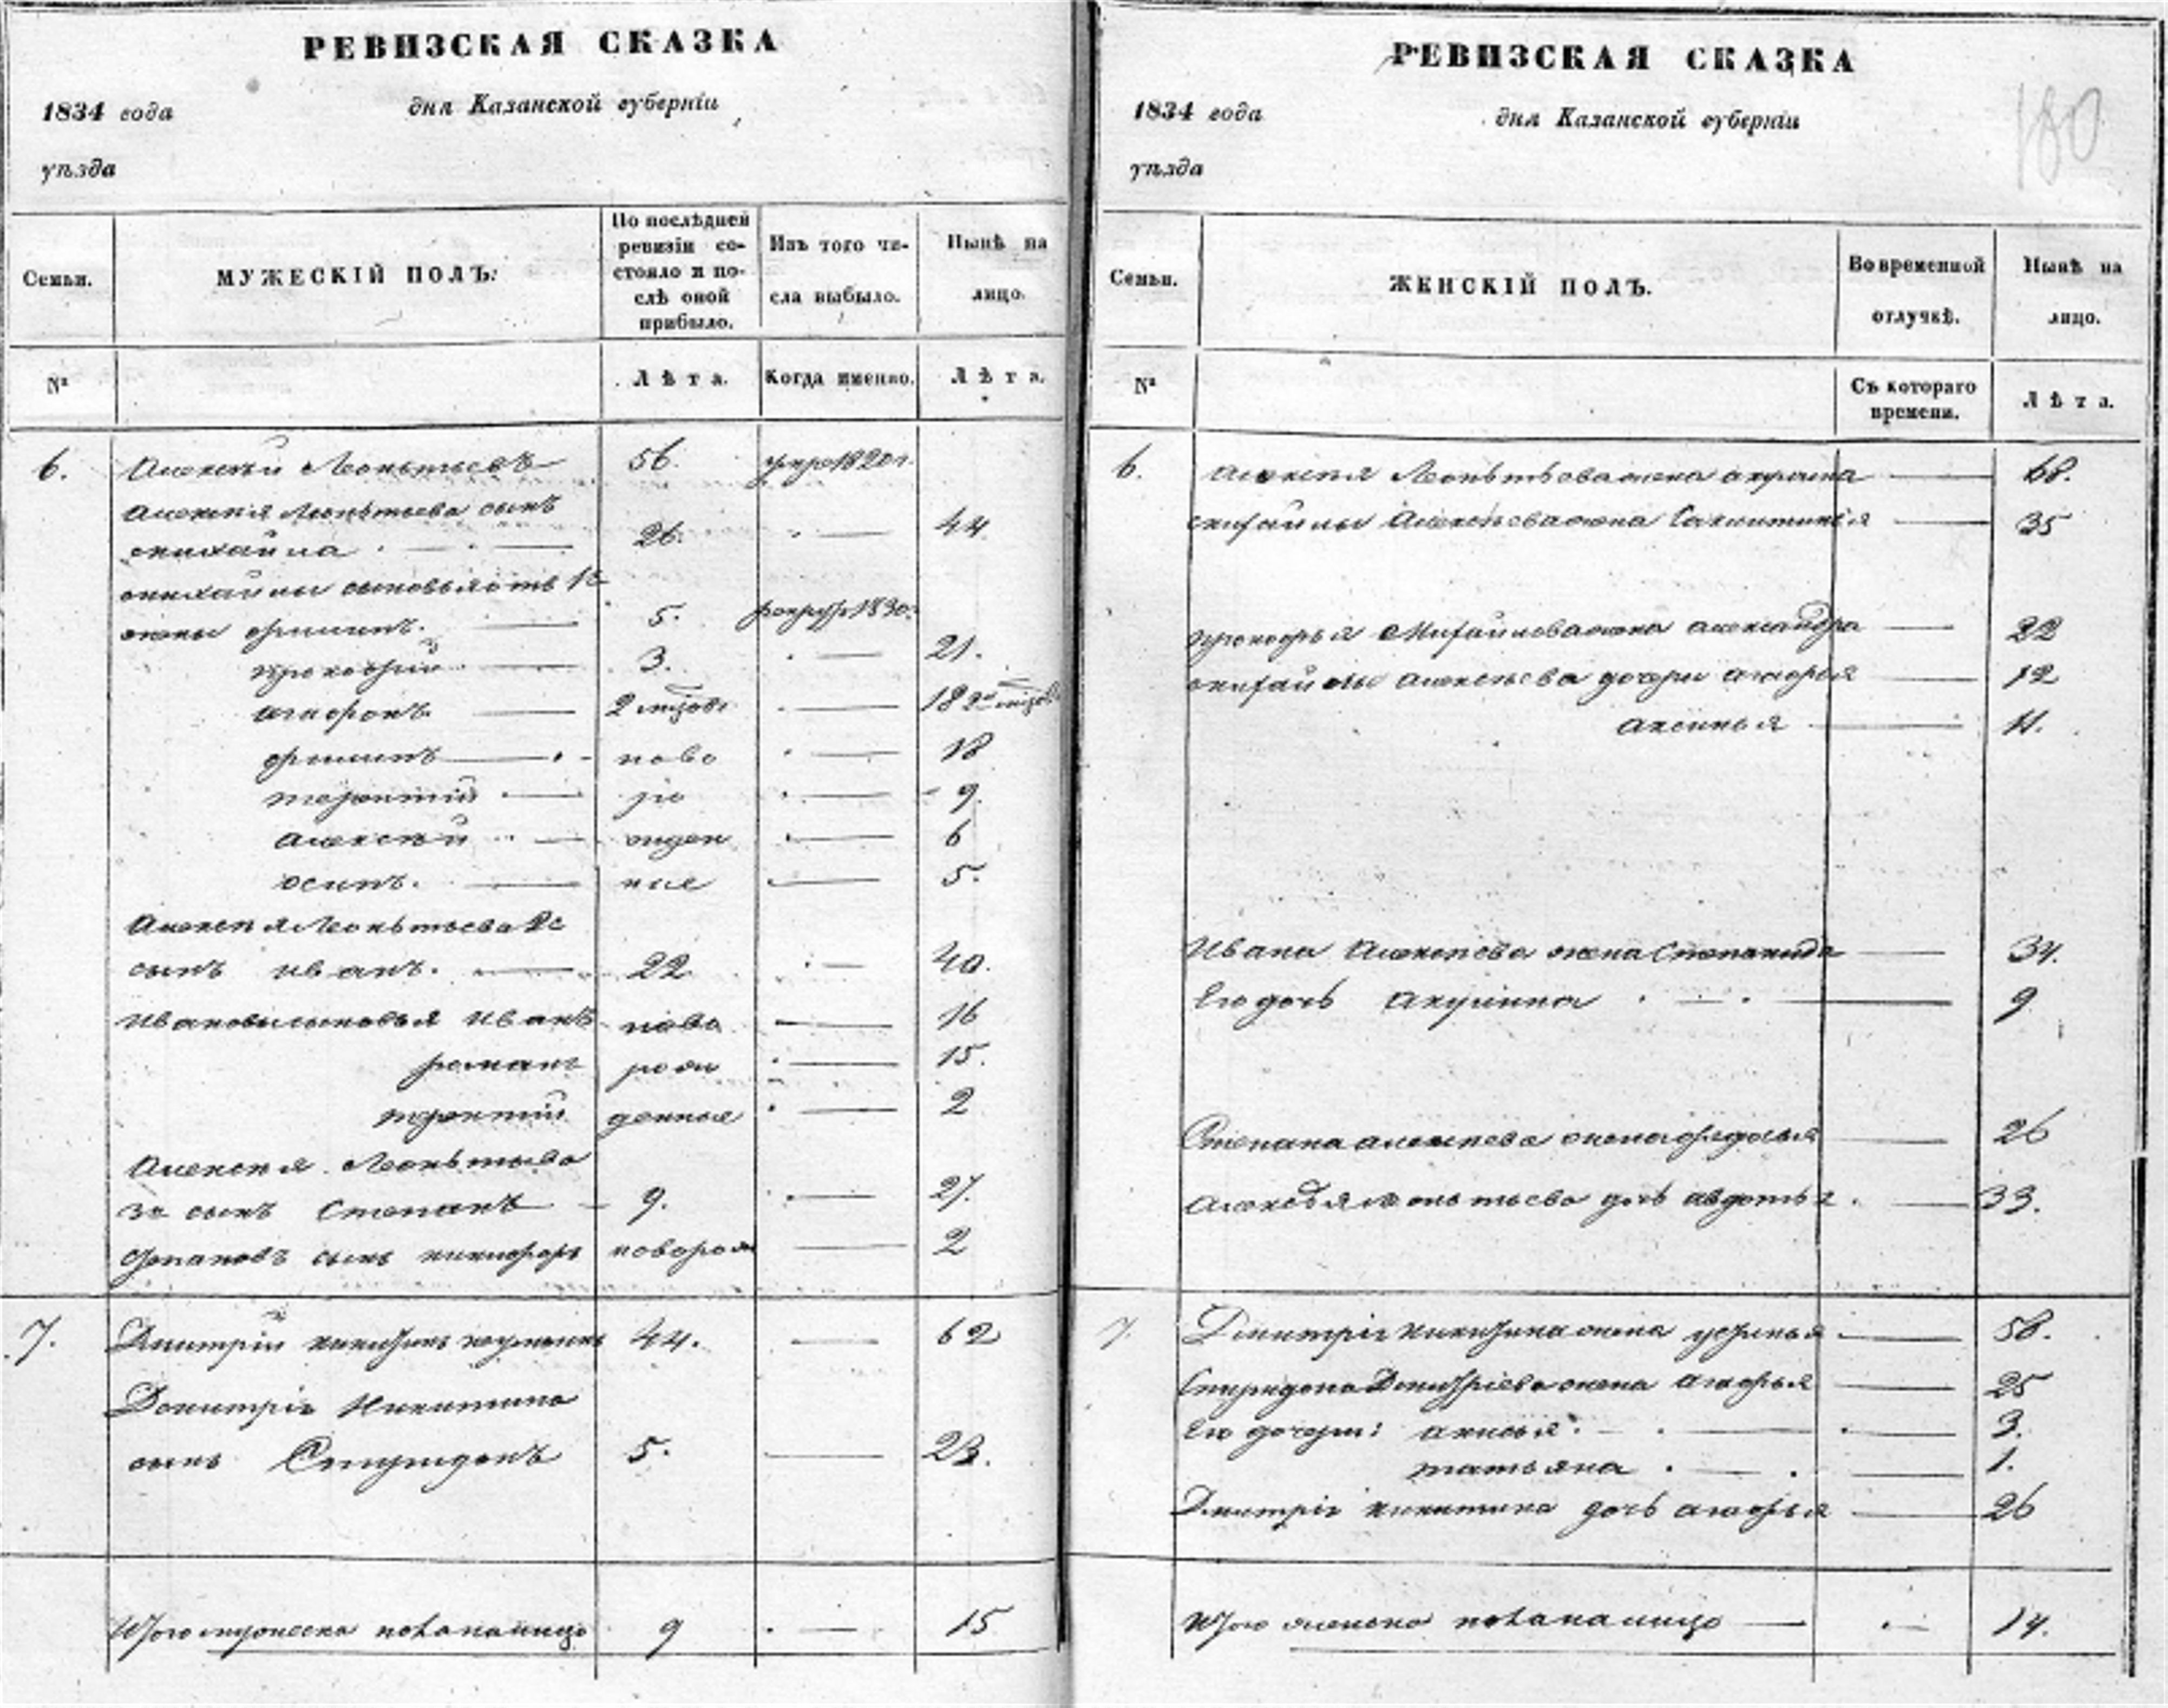 РЕВИЗСКАЯ СКАЗКА
1834 года
дня Казанской губерніи
уѣзда
Семьи.
МУЖЕСКІЙ ПОЛЪ:
По послѣдней ревизіи со-
стояло и по-
слѣ оной
прибыло.
Изъ того чи-
сла выбыло.
Нынѣ на
лицо.
№
Лѣта.
Когда именно.
Лѣта.
6. Алексѣй Леонтьевъ 56. 1820г.
Алексѣя Леонтьева сынъ
михайла 26. 44
михайлы сыновья отъ 1й
жены 5. 1830.
прокофий 3. 21.
2 18
ново 18
терентий ро 9.
алексѣй жден 6
осипъ. ные 5.
Алексѣя Леонтьева 2й
сынъ иванъ. 22 40.
Ивановы сыновья иванъ ново 16
романъ рож 15.
терентий денные 2
Алексѣя Леонтьева
3й сынъ Степанъ 9. 27.
Степановъ сынъ никифоръ новорож 2
7. Дмитрій никитинъ 44. 62
Дмитрія Никитина
сынъ Спиридонъ 5. 23.
Итого мужеска пола на лицо 9 15
РЕВИЗСКАЯ СКАЗКА
180
1834 года
дня Казанской губерніи
уѣзда
Семьи.
ЖЕНСКІЙ ПОЛЪ.
Во временной
отлучкѣ.
Нынѣ на
лицо.
№
Съ котораго
времени.
Лѣта.
6. Алексѣя Леонтьева жена 68.
михайлы Алексѣева жена 35
прокофья Михайлова жена александра 22
михайлы алексѣева дочери 12
аксинья 11.
Ивана Алексѣева жена Степанида 34.
Его дочь акулина 9
Степана алексѣева жена федосья 26
Алексѣя леонтьева дочь авдотья 33.
7. Дмитрія никитина жена 58.
Спиридона Дмитріева жена 25
Его дочери: 3.
татьяна 1.
Дмитрія никитина дочь 26
Итого женска пола на лицо 14.